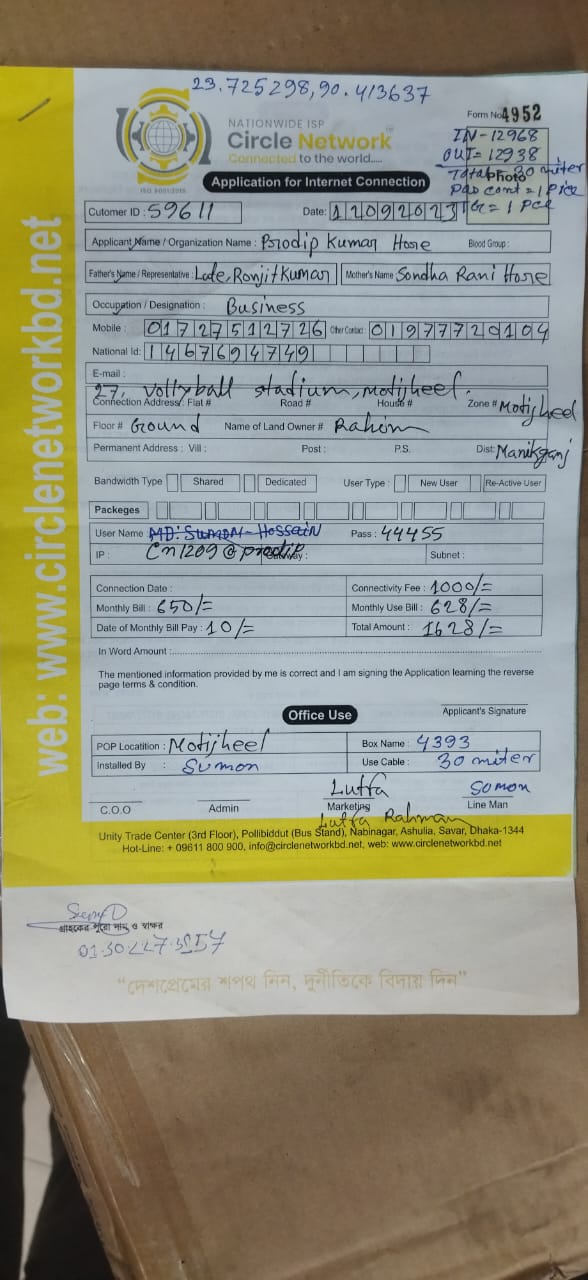 23.725298,90.413637
NATIONWIDE ISP
Circle Network
Connected to the world.....
ISO 9001:2015
Form No 4952
IN-12968
OUT=12938
Total= 30 meter
Photo
Application for Internet Connection
Cutomer ID : 59611
Date: 12092023
Applicant Name / Organization Name : Prodip Kumar Hore Blood Group :
Father's Name / Representative : Late, Ronjit Kumar Mother's Name Sondha Rani Hore
Occupation / Designation : Business
Mobile : 01727512726 Other Contact : 01977720104
National Id: 1467694749
E-mail :
27, Vollyball stadium, Motijheel.
Connection Address: Flat # Road # House # Zone # Motijheel
Floor # Ground Name of Land Owner # Rahim
Permanent Address : Vill : Post : P.S. Dist: Manikganj
Bandwidth Type Shared Dedicated User Type : New User Re-Active User
Packeges
User Name MD: Sumon Hossain Pass : 44455
IP : Cn1209@prodip Subnet :
Connection Date : Connectivity Fee : 1000/=
Monthly Bill : 650/= Monthly Use Bill : 628/=
Date of Monthly Bill Pay : 10/= Total Amount : 1628/=
In Word Amount :
The mentioned information provided by me is correct and I am signing the Application learning the reverse
page terms & condition.
Applicant's Signature
Office Use
POP Locatition : Motijheel Box Name : 4393
Installed By : Sumon Use Cable : 30 miter
Lutfa Somon
C.O.O Admin Marketing Line Man
Lutfa Rahman
Unity Trade Center (3rd Floor), Pollibiddut (Bus Stand), Nabinagar, Ashulia, Savar, Dhaka-1344
Hot-Line: + 09611 800 900, info@circlenetworkbd.net, web: www.circlenetworkbd.net
web: www.circlenetworkbd.net
গ্রাহকের পুরো নাম ও স্বাক্ষর
“দেশপ্রেমের শপথ নিন, দুর্নীতিকে বিদায় দিন”